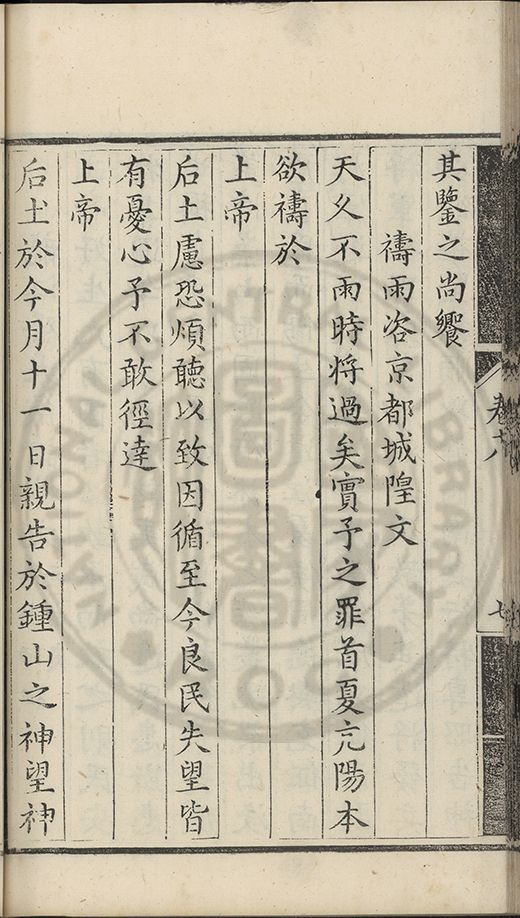 其鑒之尚饗
禱雨咨京都城隍文
天久不雨時将過矣實予之罪首夏亢陽本
欲禱於
上帝
后土慮恐煩聽以致因循至今良民失望皆
有憂心予不敢徑達
上帝
后土於今月十一日親告於鍾山之神望神
卷十八
七